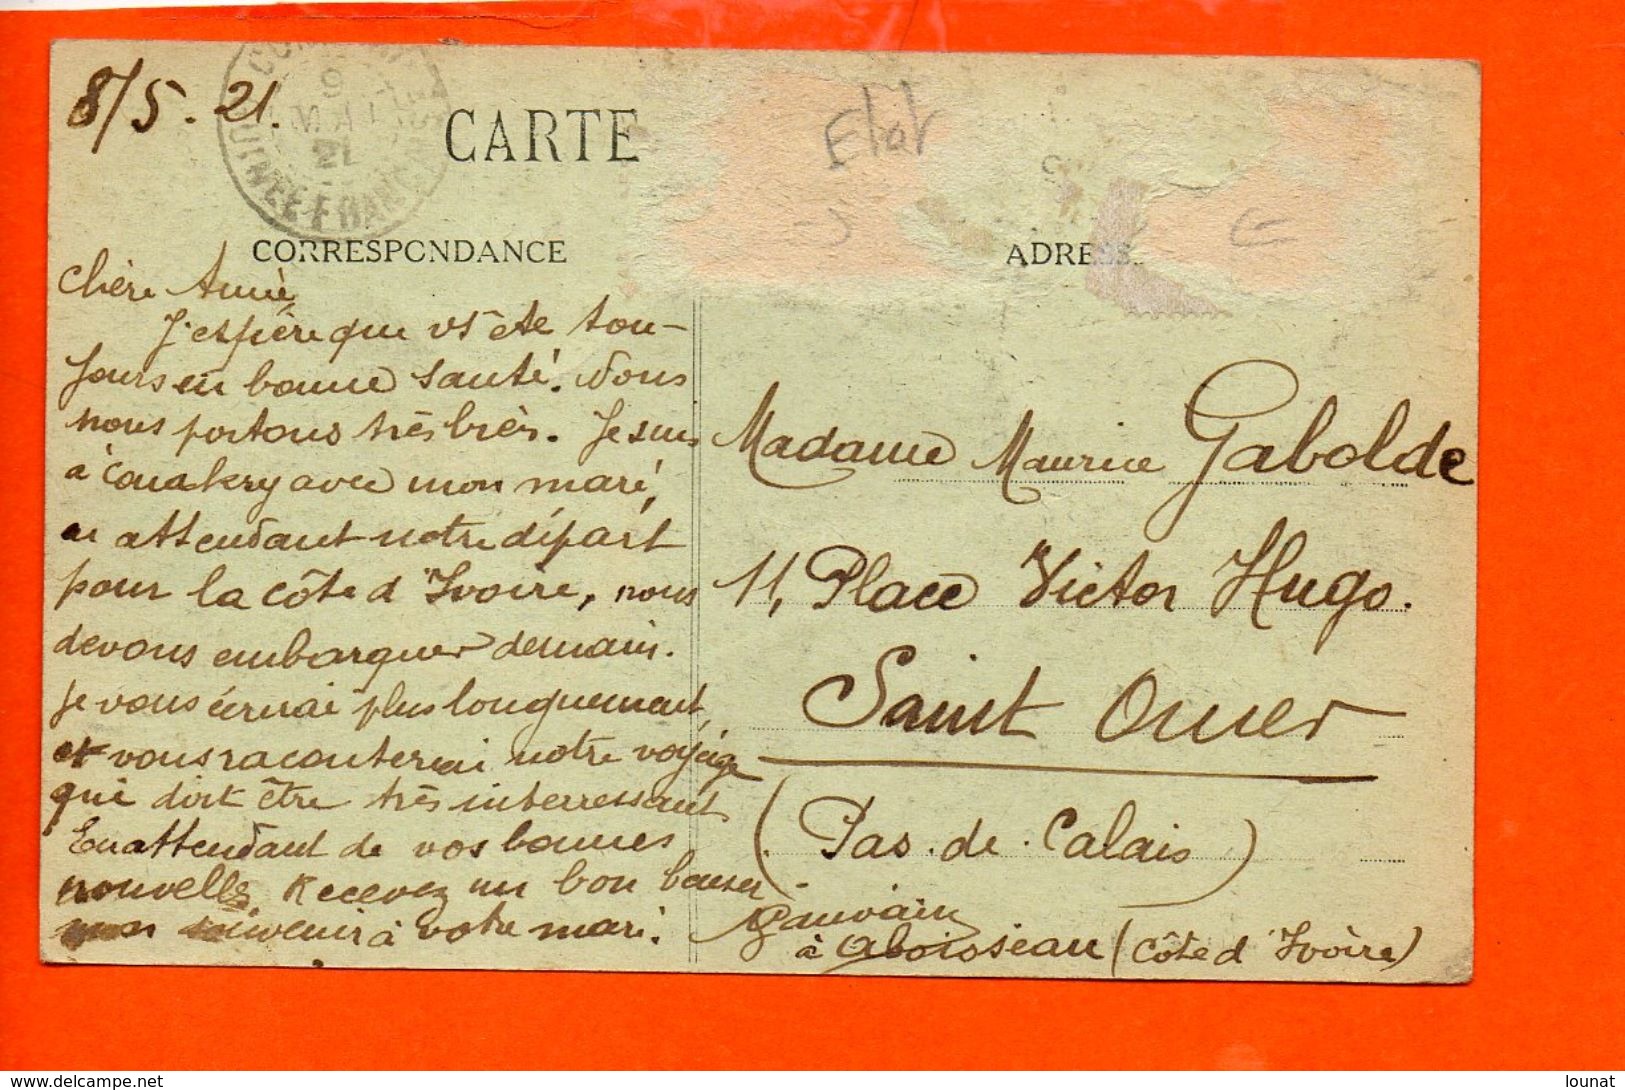 8/5.21.
CONAKRY
9
MAI
21
GUINEE FRANC
CARTE
Etat
CORRESPONDANCE
ADRESS
Chère Amie
J'espère que vs ête tou-
jours en bonne santé. Nous
nous portons très bien. Je suis
à Conakry avec mon mari,
en attendant notre départ
pour la Côte d'Ivoire, nous
devons embarquer demain.
Je vous écrirai plus longuement
et vous raconterai notre voyage
qui doit être très interressant
En attendant de vos bonnes
nouvelles, Recevez un bon baiser
mon souvenir à votre mari.
Gauvain
à Aboisseau (Côte d'Ivoire)
Madame Maurice Gabolde
11, Place Victor Hugo.
Saint Omer
(Pas.de.Calais)
delcampe.net
lounat